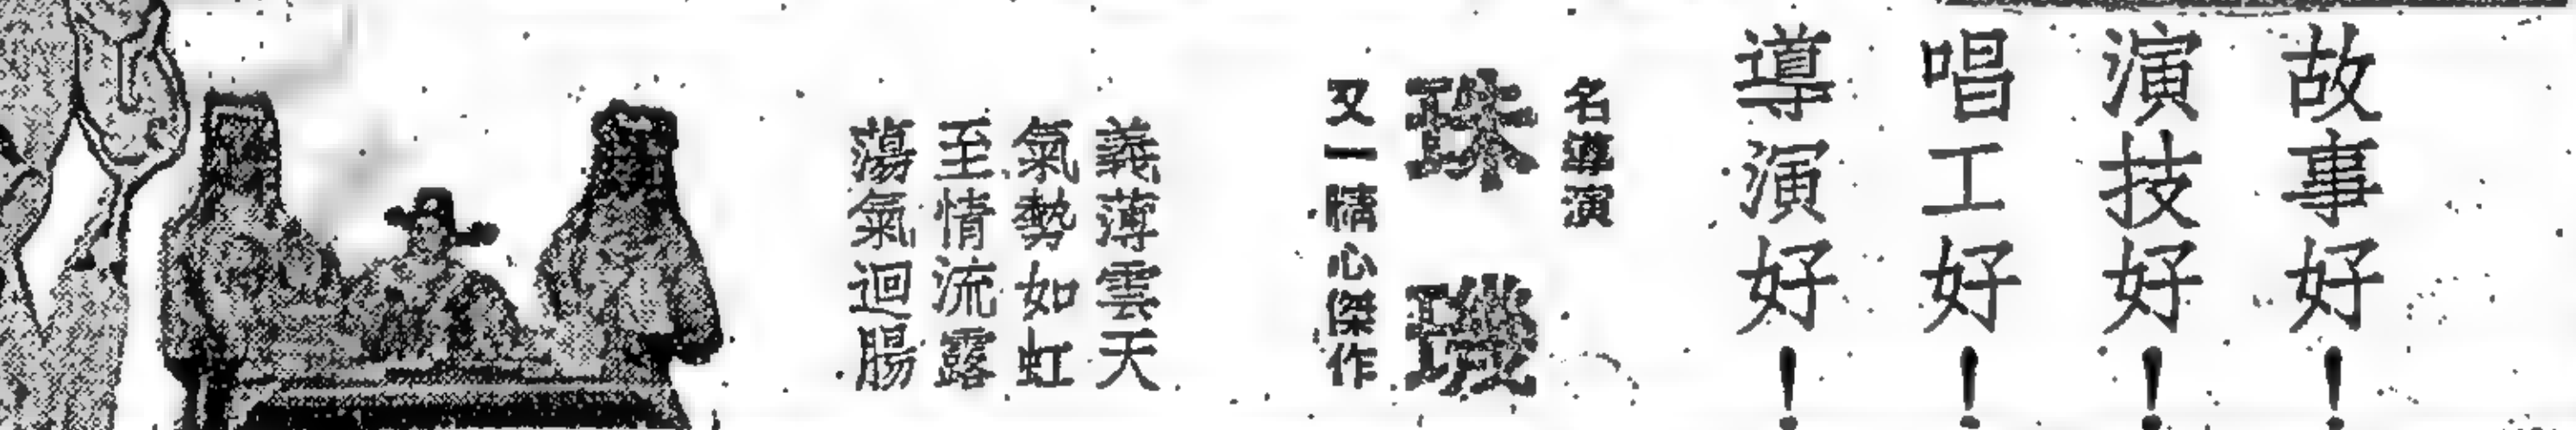 故事好！
演技好！
唱工好！
導演好！
名導演
珠璣
又一精心傑作
義薄雲天
氣勢如虹
至情流露
蕩氣迴腸